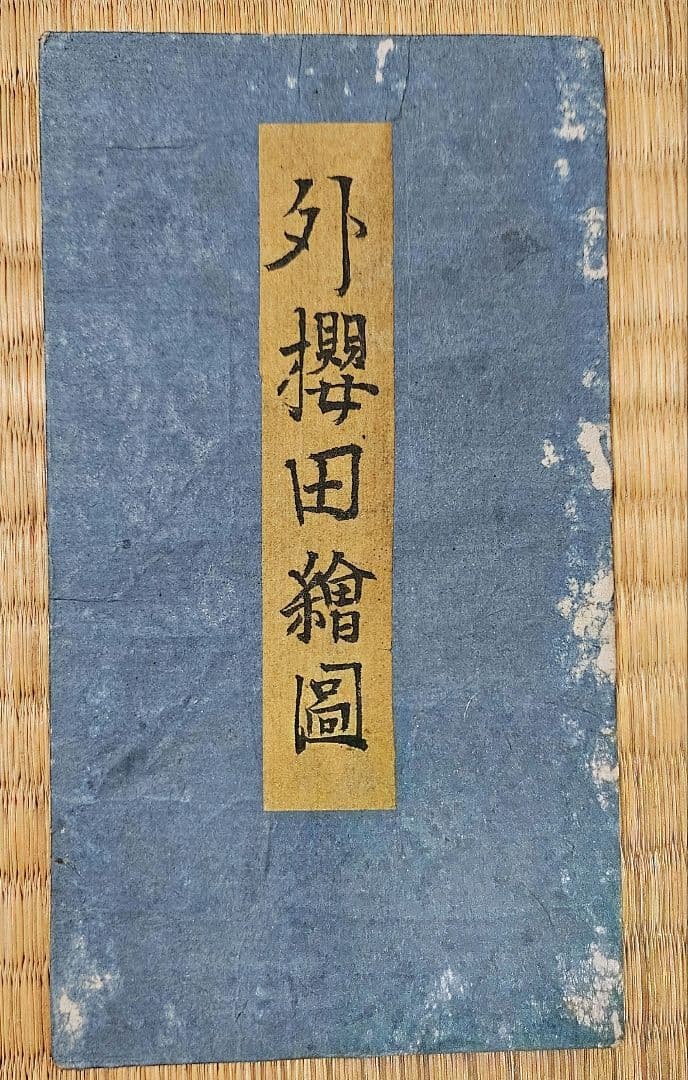 外櫻田繪圖